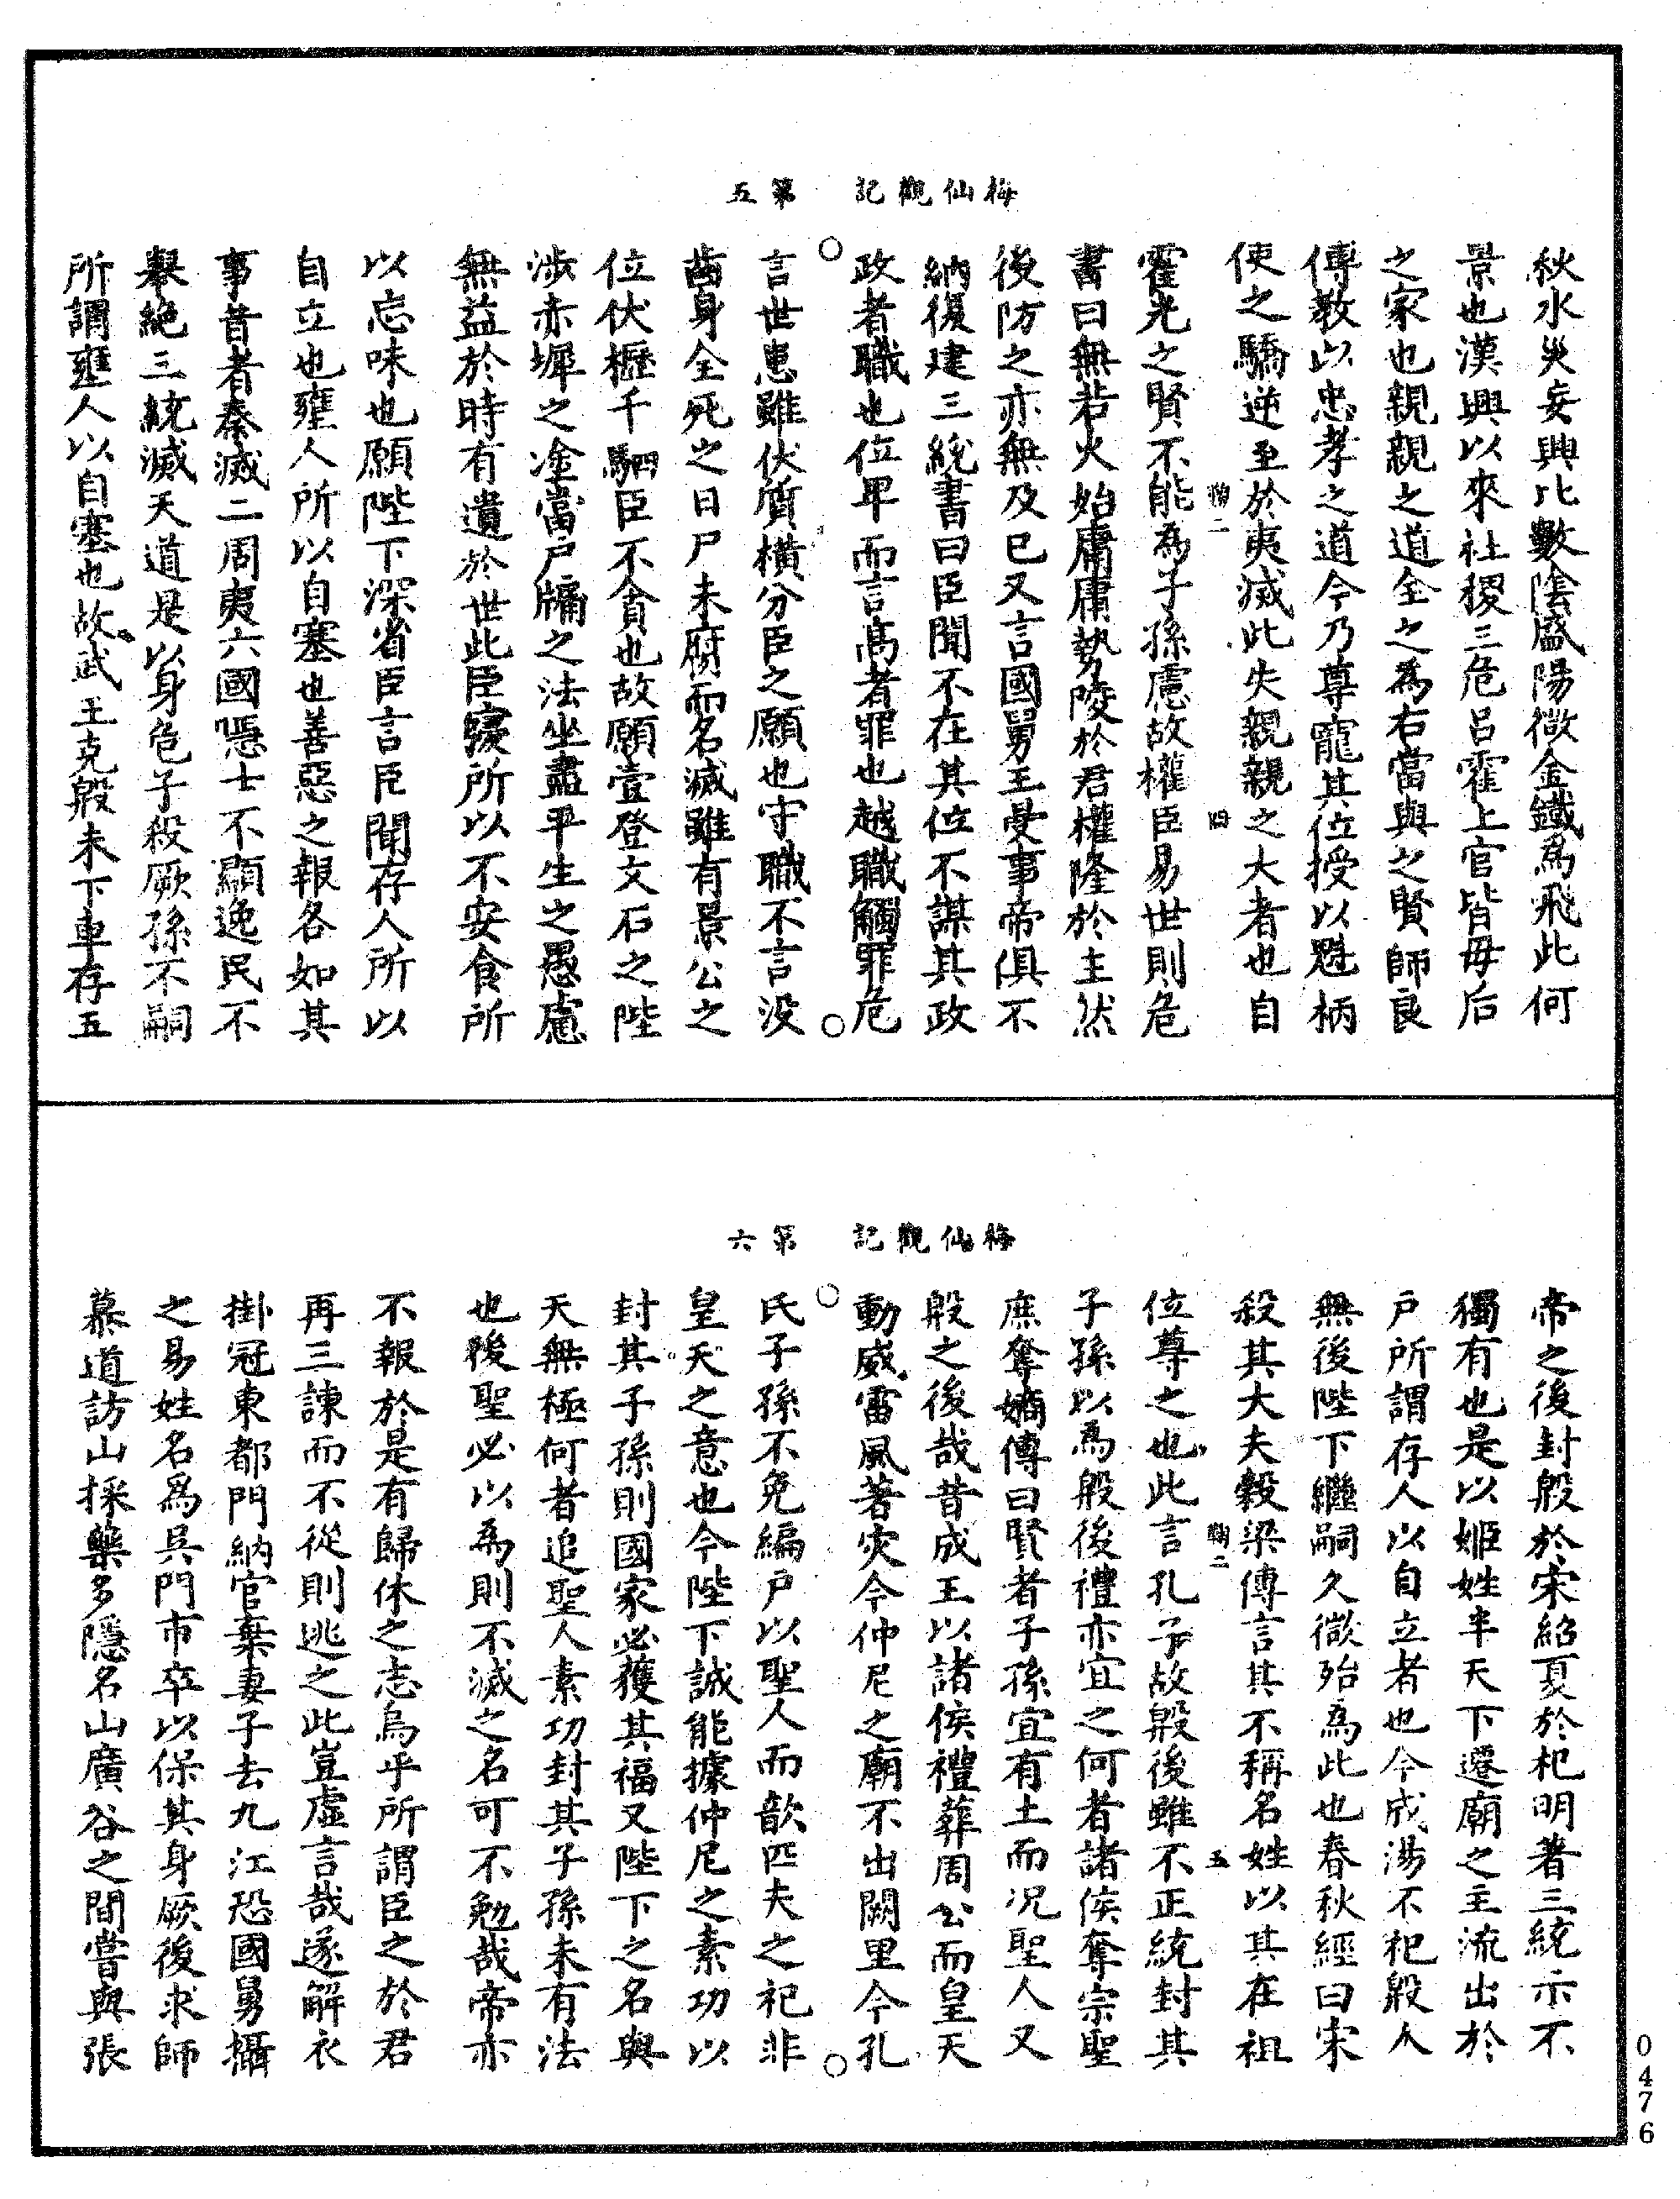 梅仙觀記　第五
秋水災妄興比數陰盛陽微金鐵為飛此何
景也漢興以來社稷三危呂霍上官皆毋后
之家也親親之道全之為右當與之賢師良
傳教以忠孝之道今乃尊寵其位授以魁柄
使之驕逆至於夷滅此失親親之大者也自
鞠二　四
霍光之賢不能為子孫慮故權臣易世則危
書曰無若火始庸庸勢陵於君權隆於主然
後防之亦無及已又言國舅王受事帝俱不
納復建三統書曰臣聞不在其位不謀其政
政者職也位卑而言高者罪也越職觸罪危
言世患雖伏質橫分臣之願也守職不言没
齒身全死之日尸未腐而名滅雖有景公之
位伏櫪千駟臣不貪也故願壹登文石之陛
涉赤墀之淦當戶牖之法坐盡平生之愚慮
無益於時有遺於世此臣寢所以不安食所
以忘味也願陛下深省臣言臣聞存人所以
自立也壅人所以自塞也善惡之報各如其
事昔者秦滅二周夷六國隱士不顯逸民不
舉絕三統滅天道是以身危子殺厥孫不嗣
所謂壅人以自塞也故武王克殷未下車存五
梅仙觀記　第六
帝之後封殷於宋紹夏於杞明著三統示不
獨有也是以姬姓半天下遷廟之主流出於
戶所謂存人以自立者也今成湯不祀殷人
無後陛下繼嗣久微殆為此也春秋經曰宋
殺其大夫穀梁傳言其不稱名姓以其在祖
鞠二　五
位尊之也此言孔子故殷後雖不正統封其
子孫以為殷後禮亦宜之何者諸侯奪宗聖
庶奪嫡傳曰賢者子孫宜有土而况聖人又
殷之後哉昔成王以諸侯禮葬周公而皇天
動威雷風著灾今仲尼之廟不出闕里今孔
氏子孫不免編戶以聖人而歆匹夫之祀非
皇天之意也今陛下誠能據仲尼之素功以
封其子孫則國家必獲其福又陛下之名與
天無極何者追聖人素功封其子孫未有法
也後聖必以為則不滅之名可不勉哉帝亦
不報於是有歸休之志烏乎所謂臣之於君
再三諫而不從則逃之此豈虛言哉遂解衣
掛冠東都門納官棄妻子去九江恐國舅攝
之易姓名為吳門市卒以保其身厥後求師
慕道訪山採藥多隱名山廣谷之間嘗與張
0476